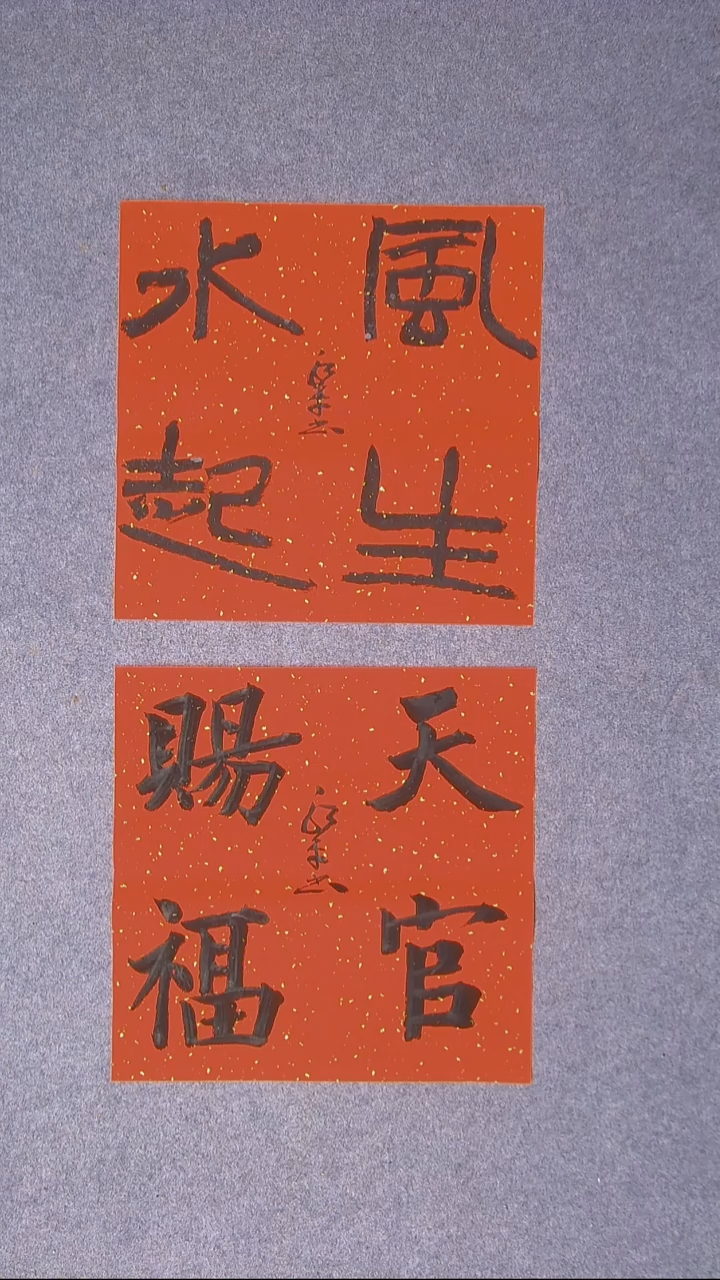 風生
水起
天官
賜福